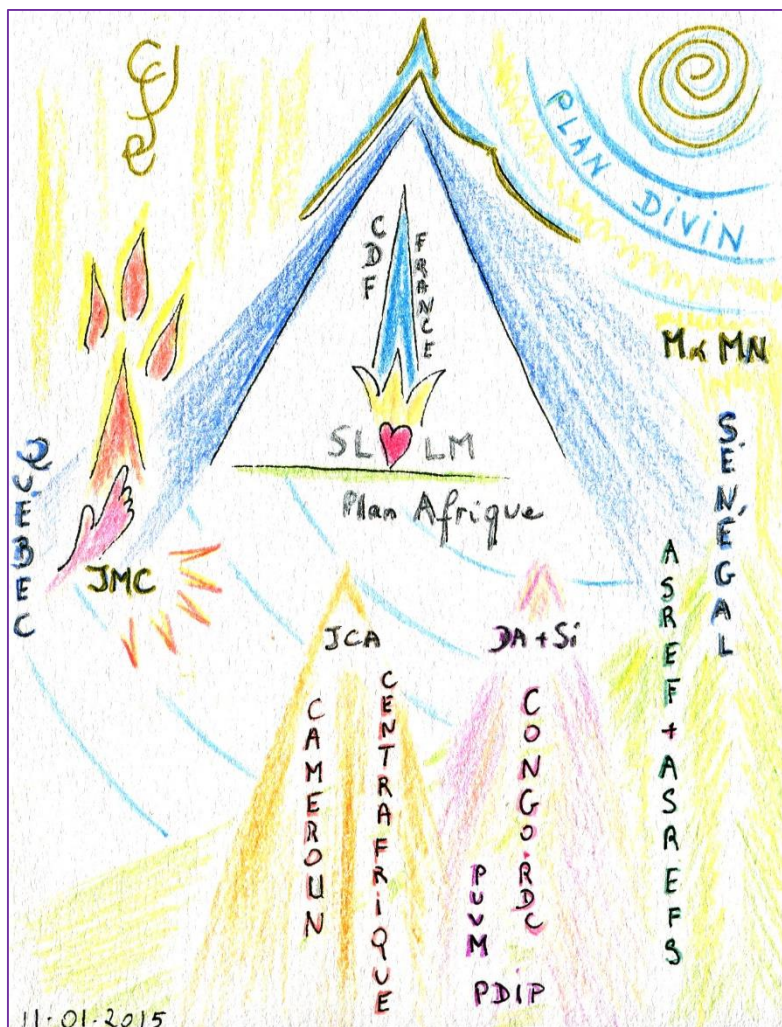 PLAN DIVIN
CDF
FRANCE
MN
SL LM
Plan Afrique
QUÉBEC
JMC
SÉNÉGAL
ASREF + ASREFS
JCA
DA + Si
CAMEROUN
CENTRAFRIQUE
CONGO.RDC
PUVM
PDiP
11-01-2015